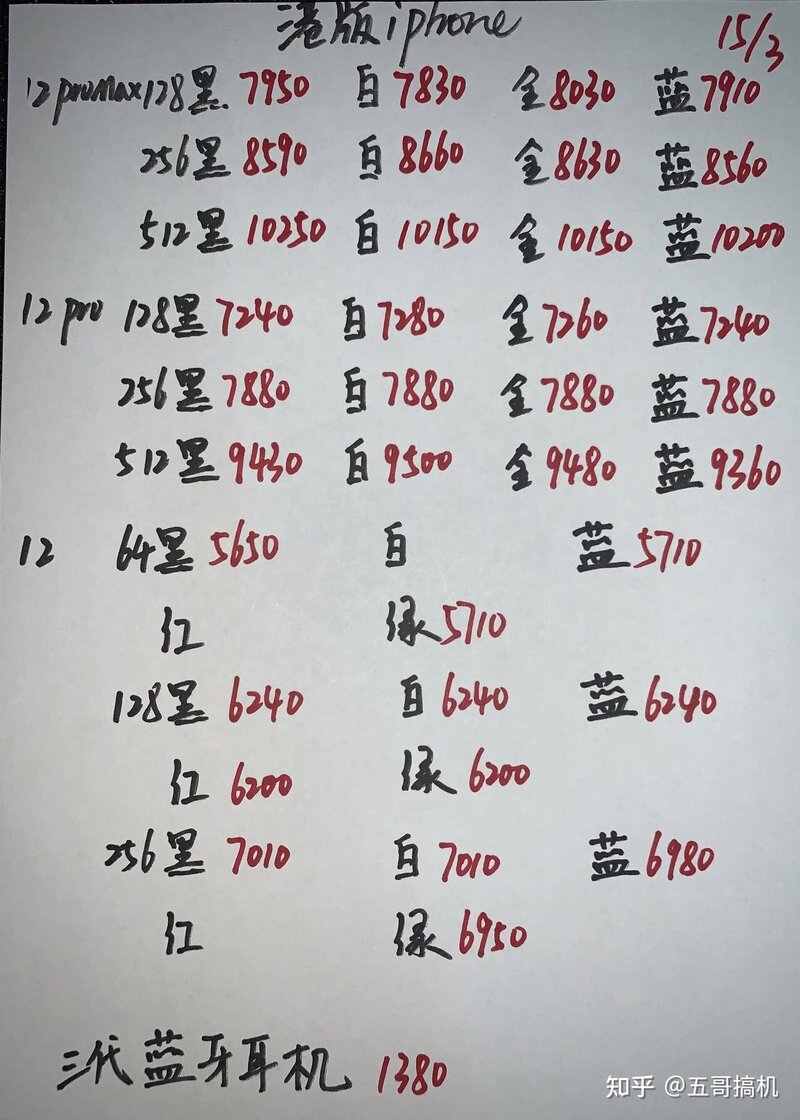 港版iphone 15/3
12promax128黑 7950 白 7830 金8030 蓝7910
256黑 8590 白 8660 金8630 蓝8560
512黑 10250 白 10150 金10150 蓝10200
12 pro 128黑 7240 白7280 金7260 蓝7240
256黑 7880 白7880 金7880 蓝7880
512黑 9430 白9500 金9480 蓝9360
12 64黑 5650 白 蓝5710
红 绿5710
128黑 6240 白6240 蓝6240
红 6200 绿6200
256黑 7010 白7010 蓝6980
红 绿6950
三代蓝牙耳机 1380
知乎 @五哥搞机